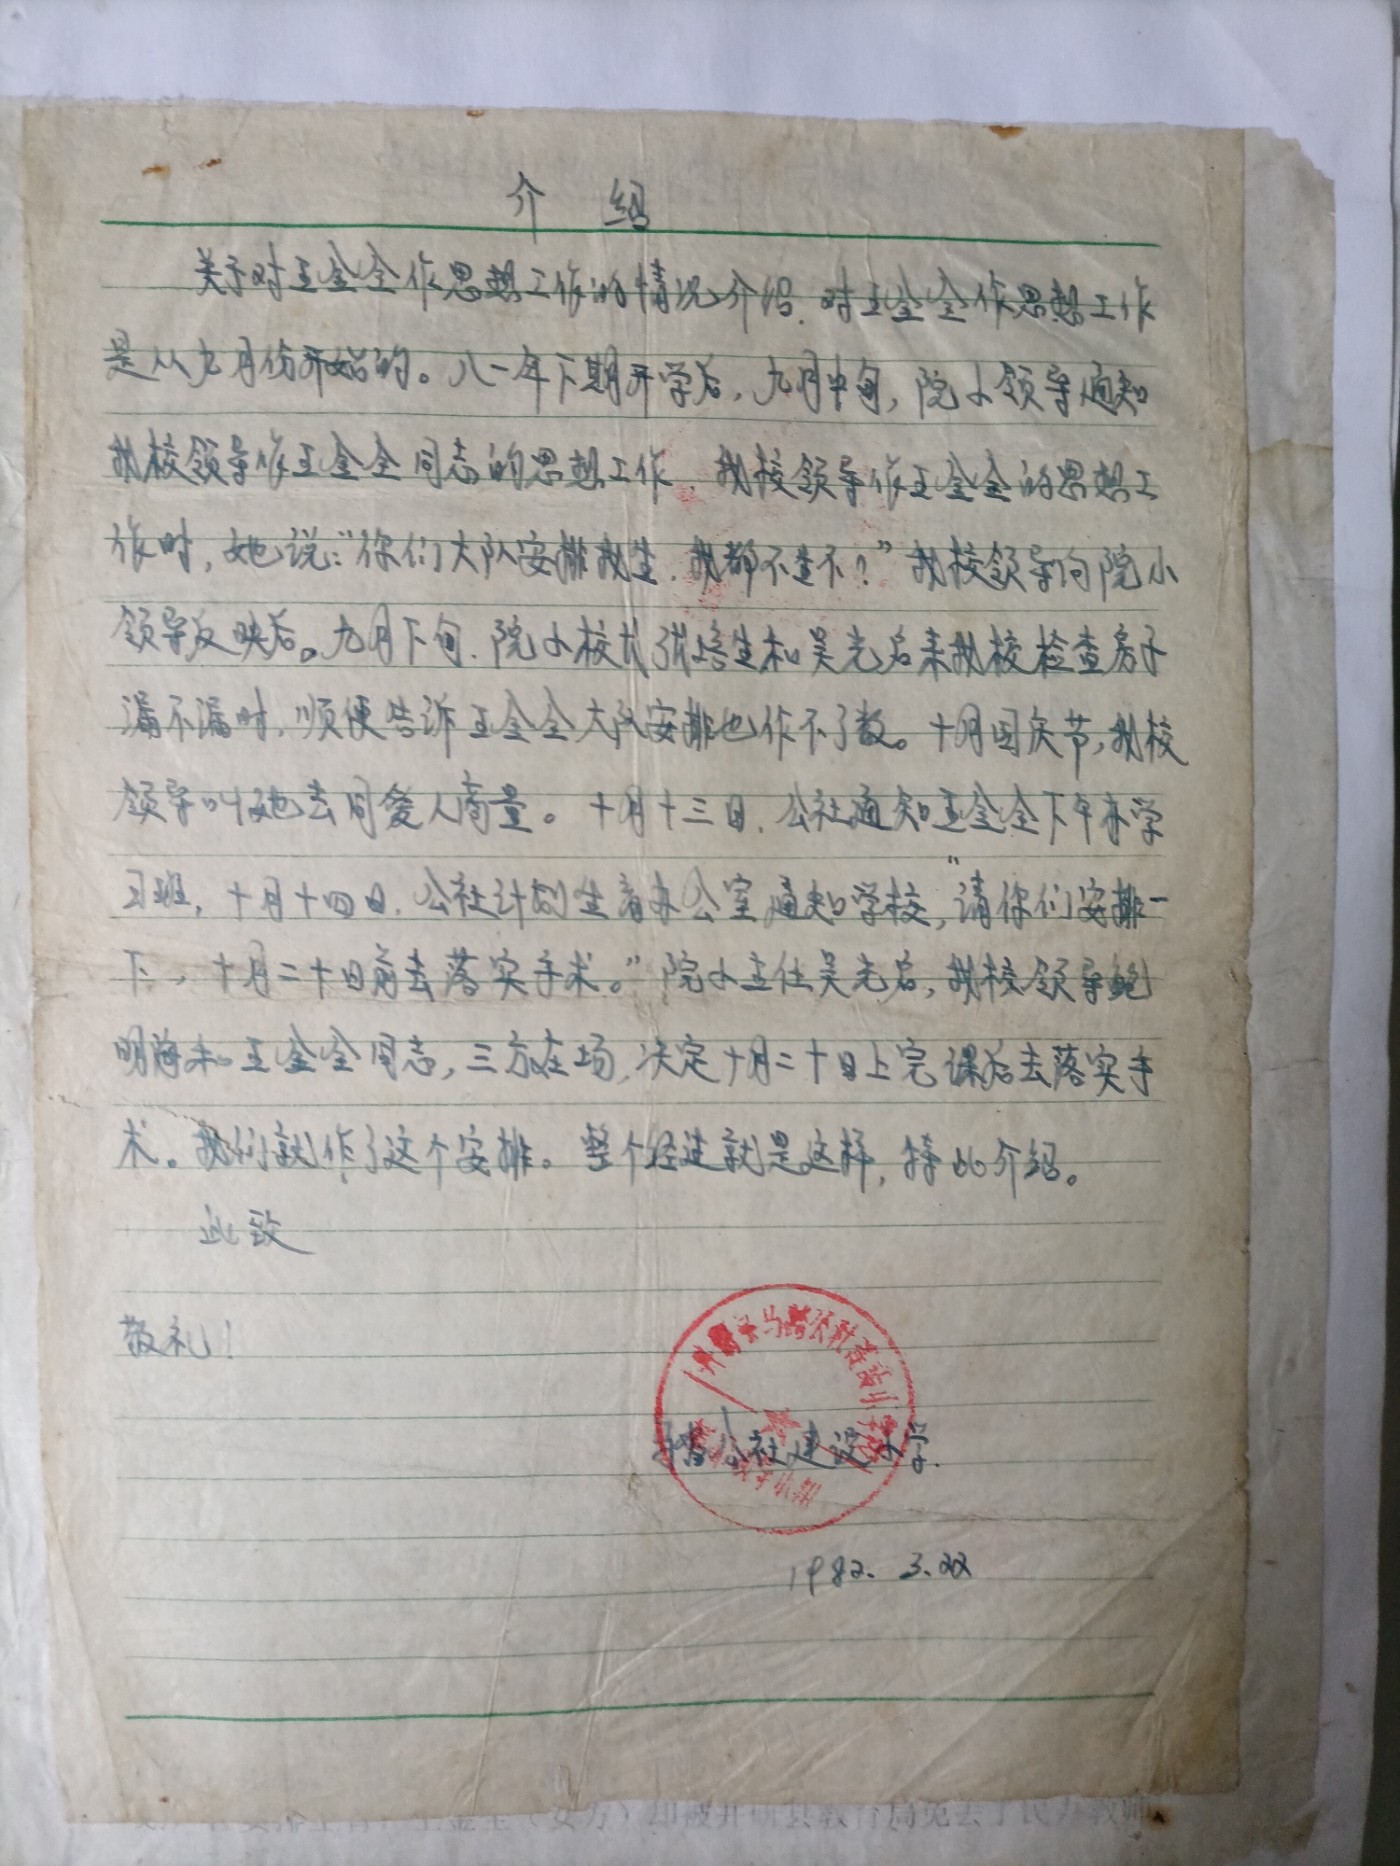 介 绍
关于对王金全作思想工作的情况介绍.对王金全作思想工作
是从九月份开始的。八一年下期开学后,九月中旬,院小领导通知
我校领导作王金全同志的思想工作.我校领导作王金全的思想工
作时,她说:“你们大队安排我生.我都不生不?”我校领导向院小
领导反映后。九月下旬.院小校长张培生和吴光启来我校检查房子
漏不漏时,顺便告诉王金全大队安排也作不了数。十月国庆节,我校
领导叫她去同爱人商量。十月十三日.公社通知王金全下午办学
习班,十月十四日.公社计划生育办公室通知学校,“请你们安排一
下,十月二十日前去落实手术。”院小主任吴光启,我校领导鲍
明海和王金全同志,三方在场,决定十月二十日上完课后去落实手
术。我们就作了这个安排。整个经过就是这样,特此介绍。
此致
敬礼!
公社建设小学.
1982. 3.22
王金全(女方)却被井研县教育局免去了民办教师